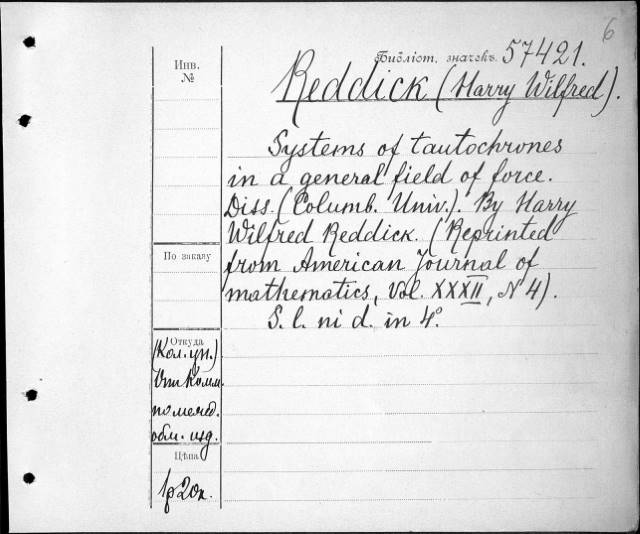 6
Библіот. значекъ 57421.
Reddick (Harry Wilfred).
Systems of tautochrones
in a general field of force.
Diss. (Columb. Univ.). By Harry
Wilfred Reddick. (Reprinted
from American Journal of
mathematics, Vol. XXXII, N 4).
S. l. ni d. in 4°.
Инв.
№
По заказу
Откуда
(Кол. ун.)
Отъ Комм.
по межд.
обм. изд.
Цѣна
1р20к.